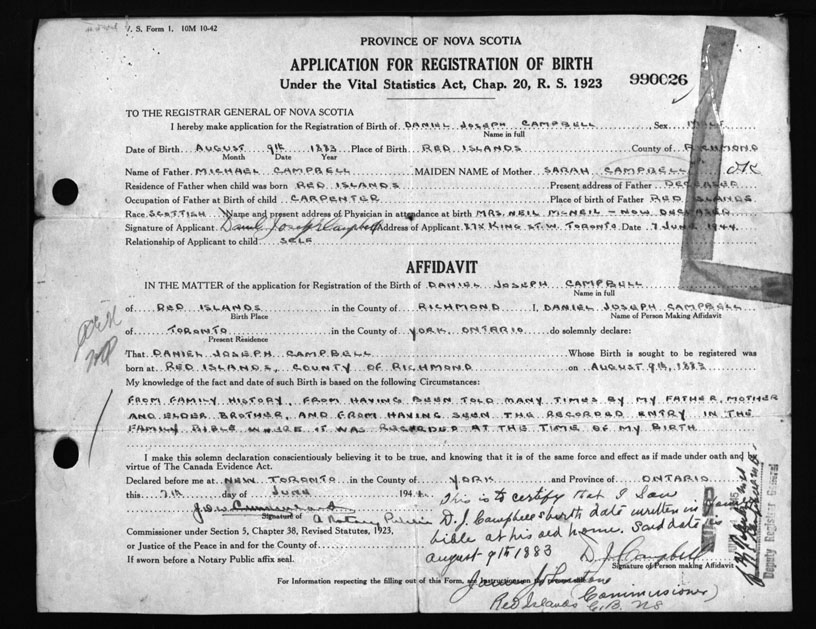 V. S. Form 1. 10M 10-42
PROVINCE OF NOVA SCOTIA
APPLICATION FOR REGISTRATION OF BIRTH
Under the Vital Statistics Act, Chap. 20, R. S. 1923
990026
TO THE REGISTRAR GENERAL OF NOVA SCOTIA
I hereby make application for the Registration of Birth of DANIEL JOSEPH CAMPBELL Sex MALE
Name in full
Date of Birth AUGUST 9th 1883 Place of Birth RED ISLANDS County of RICHMOND
Month Date Year
Name of Father MICHAEL CAMPBELL MAIDEN NAME of Mother SARAH CAMPBELL OK
Residence of Father when child was born RED ISLANDS Present address of Father DECEASED
Occupation of Father at Birth of child CARPENTER Place of birth of Father RED ISLANDS
Race SCOTTISH Name and present address of Physician in attendance at birth MRS. NEIL McNEIL - NOW DECEASED
Signature of Applicant Daniel Joseph Campbell Address of Applicant KING ST. W. TORONTO Date 7 JUNE 1944
Relationship of Applicant to child SELF
AFFIDAVIT
IN THE MATTER of the application for Registration of the Birth of DANIEL JOSEPH CAMPBELL
Name in full
of RED ISLANDS in the County of RICHMOND I, DANIEL JOSEPH CAMPBELL
Birth Place Name of Person Making Affidavit
of TORONTO in the County of YORK, ONTARIO do solemnly declare:
Present Residence
That DANIEL JOSEPH CAMPBELL Whose Birth is sought to be registered was
born at RED ISLANDS, COUNTY OF RICHMOND on AUGUST 9th, 1883
My knowledge of the fact and date of such Birth is based on the following Circumstances:
FROM FAMILY HISTORY, FROM HAVING BEEN TOLD MANY TIMES BY MY FATHER, MOTHER
AND ELDER BROTHER, AND FROM HAVING SEEN THE RECORDED ENTRY IN THE
FAMILY BIBLE WHERE IT WAS RECORDED AT THE TIME OF MY BIRTH
I make this solemn declaration conscientiously believing it to be true, and knowing that it is of the same force and effect as if made under oath and
virtue of The Canada Evidence Act.
Declared before me at NEW TORONTO in the County of YORK and Province of ONTARIO
this 7th day of JUNE 194
Signature of A Notary Public
Commissioner under Section 5, Chapter 38, Revised Statutes, 1923,
or Justice of the Peace in and for the County of
If sworn before a Notary Public affix seal.
This is to certify that I saw
D. J. Campbell's birth date written in family
bible at his old home. Said date is
August 9th 1883
D. J. Campbell
Signature of Person making Affidavit
For Information respecting the filling out of this Form, see Instructions on the
Commissioner
Red Islands C.B. NS
Deputy Registrar General